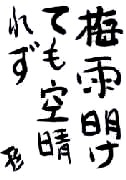 梅雨明け
ても空晴
れず